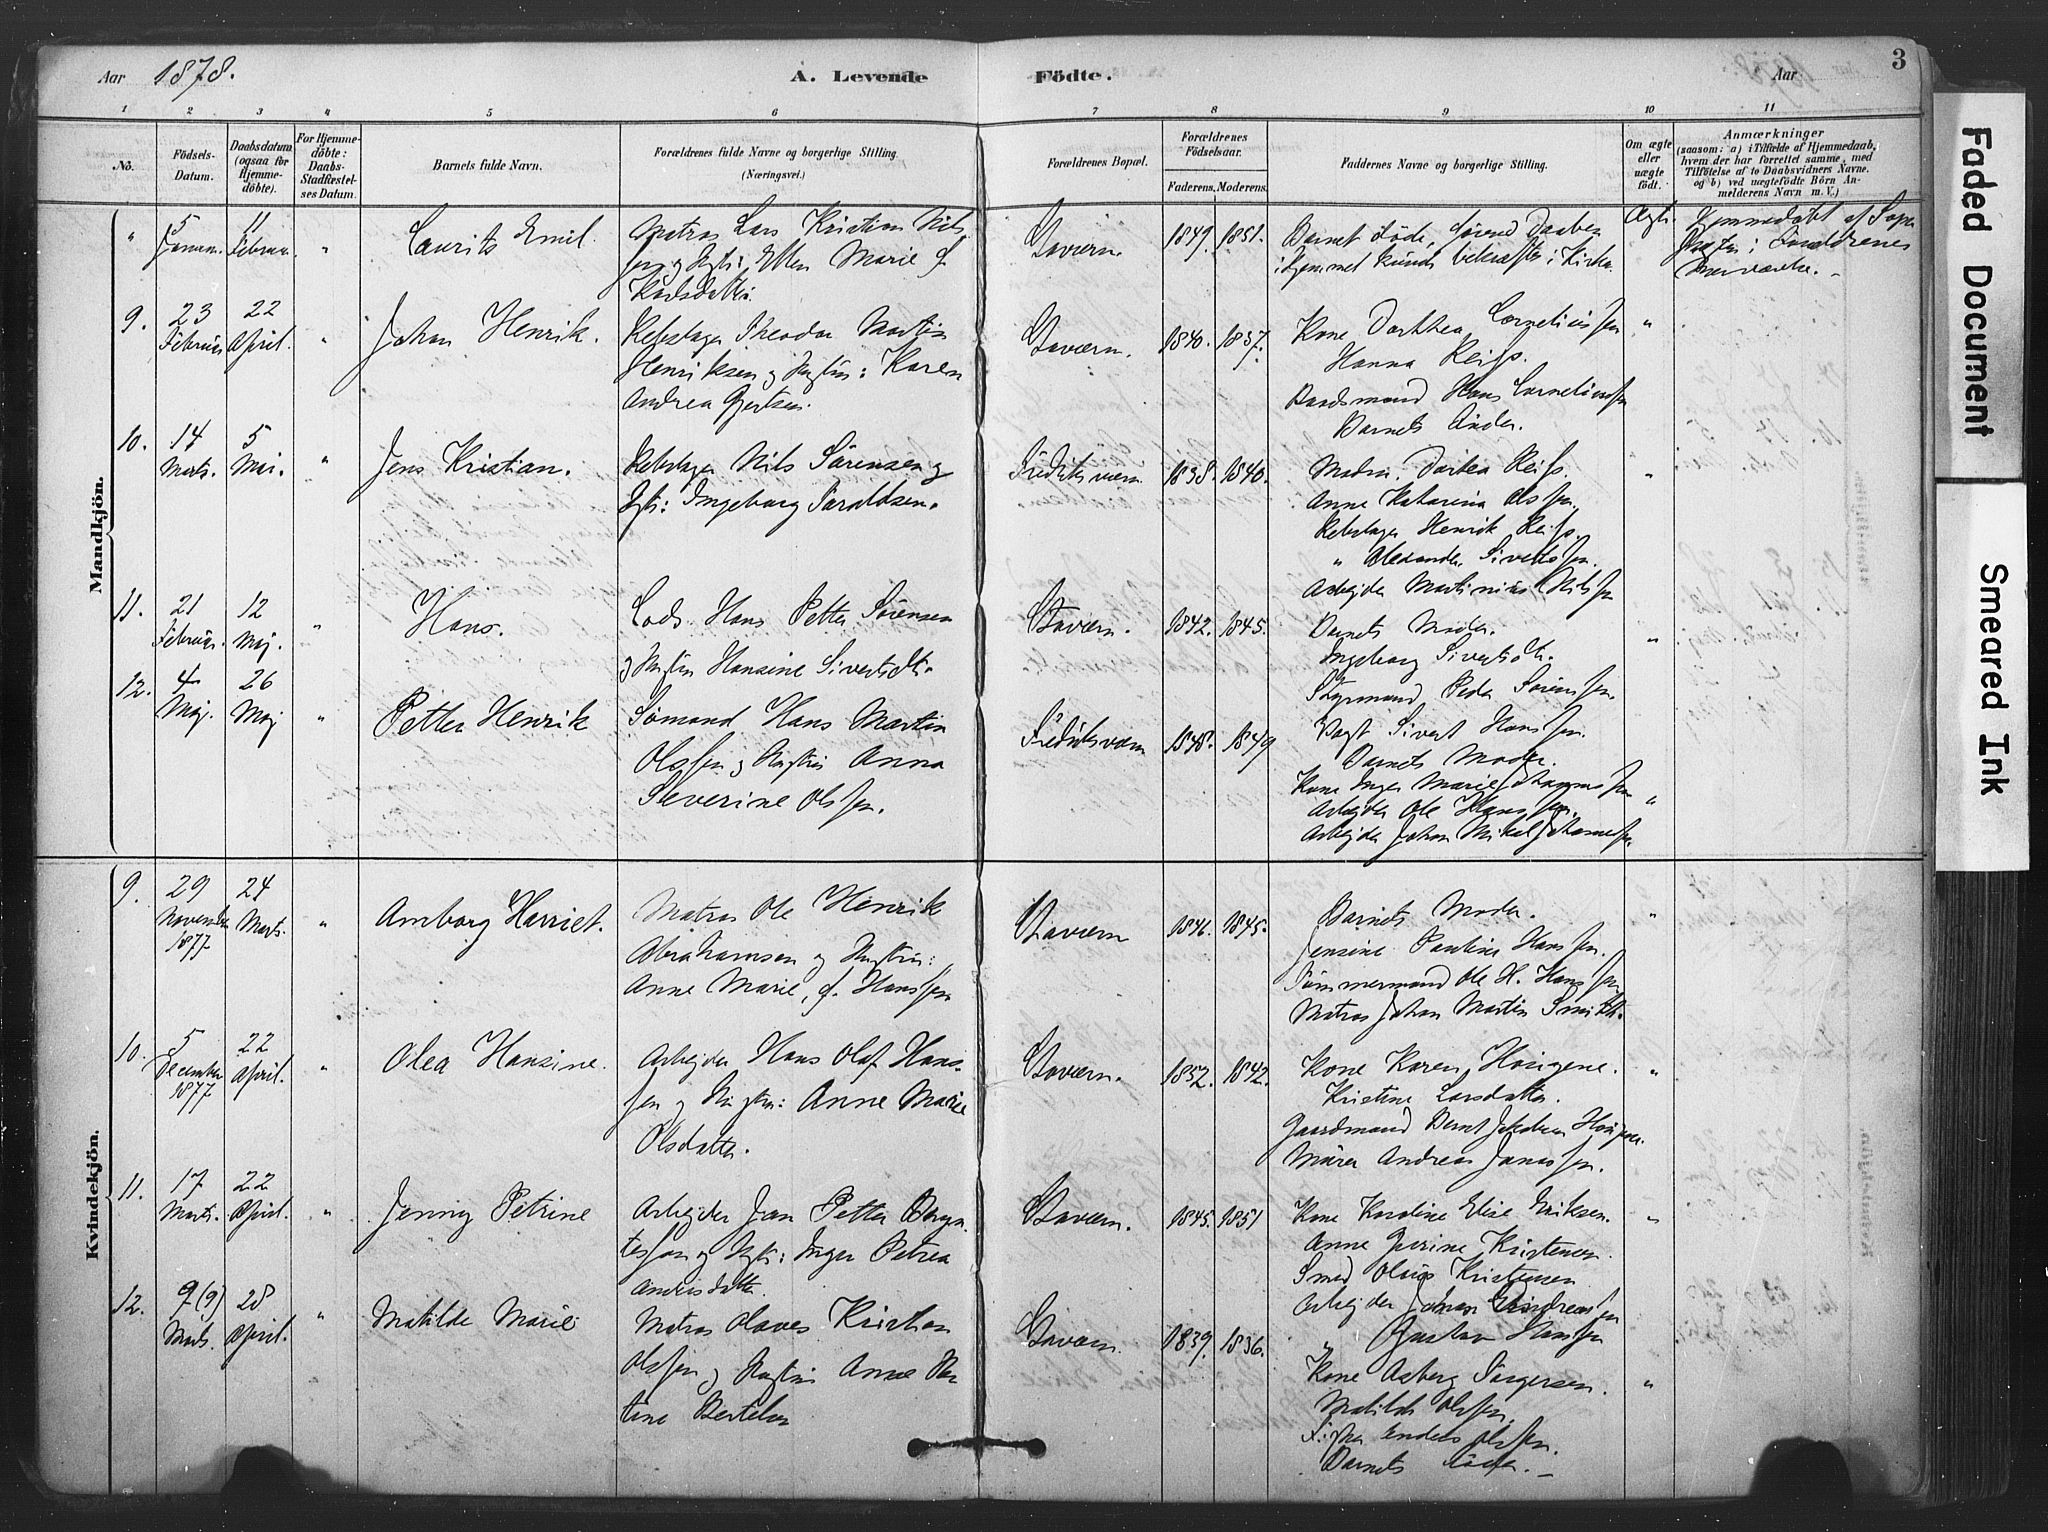 Aar 1878.
A. Levende Födte.
Aar
3
1 2 3 4 5 6 7 8 9 10 11
No.
Födsels-
Datum.
Daabsdatum
(ogsaa for
Hjemme-
döbte).
For Hjemme-
döbte:
Daabs-
Stadfæstel-
ses Datum.
Barnets fulde Navn.
Forældrenes fulde Navne og borgerlige Stilling.
(Næringsvei.)
Forældrenes Bopæl.
Forældrenes
Födselsaar.
Faderens. Moderens.
Faddernes Navne og borgerlige Stilling.
Om ægte
eller
uægte
födt.
Anmærkninger
(saasom: a) i Tilfælde af Hjemmedaab,
hvem der har forrettet samme, med
Tilföielse af to Daabsvidners Navne.
og b) ved uægtefödte Börn An-
melderens Navn m. V.)
Mandkjön.
" 5 Januar. 11 Februar. " Laurits Emil.
Matros Lars Kristian Nils
sen og Hustr: Ellen Marie f.
Karlsdatter.
Stavern. 1849. 1851.
Barnet døde,
i Hjemmet
Ægte.
Hjemmedøbt af
i Forældrenes
Nærværelse.
9. 23 Februar 22 April. " Johan Henrik.
Rebslager Theodor Martin
Henriksen og Hustru: Karen
Andrea Gjertsen.
Stavern. 1840. 1837.
Kone Dorthea Corneliussen "
Hanna Reiss.
Baadsmand Hans Corneliussen
Barnets Fader.
10. 14 Marts. 5 Mai. " Jens Kristian.
Rebslager Nils Sørensen og
Hustr: Ingeborg Taraldsen.
Fredriksværn 1838. 1840.
Madm. Dorthea Reiss. "
Anne Katarina Olssen.
Rebslager Henrik Reiss.
" Alexander Sivertssen.
Arbejder Martinius Nilssen
11. 21 Februar. 12 Maj. " Hans.
Lods. Hans Petter Sørensen
og Hustru Hansine Sivertsdtr.
Stavern. 1842. 1845.
Barnets Moder. "
Ingeborg Sivertsdtr.
Styrmand Peder Sørenssen.
12. 4 Maj. 26 Maj " Petter Henrik
Sømand Hans Martin
Olssen og Hustru Anna
Severine Olssen.
Fredriksværn 1848. 1849
Vagt Sivert Hanssen.
Barnets Moder.
Kone Inger Marie Johannessen "
Arbejder Ole Hanssen.
Arbejder Johan Mikal Johannessen.
Kvindekjön.
9. 29 November 1877 24 Marts. " Amborg Harriet.
Matros Ole Henrik
Abrahamsen og Hustru:
Anne Marie, f. Hanssen
Stavern 1846. 1845.
Barnets Moder. "
Jensine Pauline Hanssen.
Tömmermand Ole H. Hanssen
Matros Johan Martin Smith.
10. 5 December 1877 22 April. " Olea Hansine.
Arbejder Hans Olaf Hans-
sen og Hustru: Anne Marie
Olsdatter.
Stavern. 1852. 1842.
Kone Karen Haugene. "
Kristine Larsdatter.
Gaardmand Bernt Jakobsen
Murer Andreas Jonassen.
11. 17 Marts. 22 April. " Jenny Petrine
Arbejder Jan Petter
og Hustr: Inger Petrea
Andersdatter.
Stavern. 1845. 1851
Kone Karoline Elise Eriksen. "
Anne Gurine Kristensen.
Smed Olaus Kristensen
Arbejder Johan Andreassen
" Gustav Hanssen
12. 9 (9) Marts. 28 April. " Matilde Marie
Matros Olaves Kristian
Olssen og Hustru Anne Mar
tine Bertelsen
Stavern. 1839. 1836.
Kone Asberg Torgersen. "
Matilde Olssen.
Fisker Enders Olssen.
Barnets Fader.
Faded Document
Smeared Ink